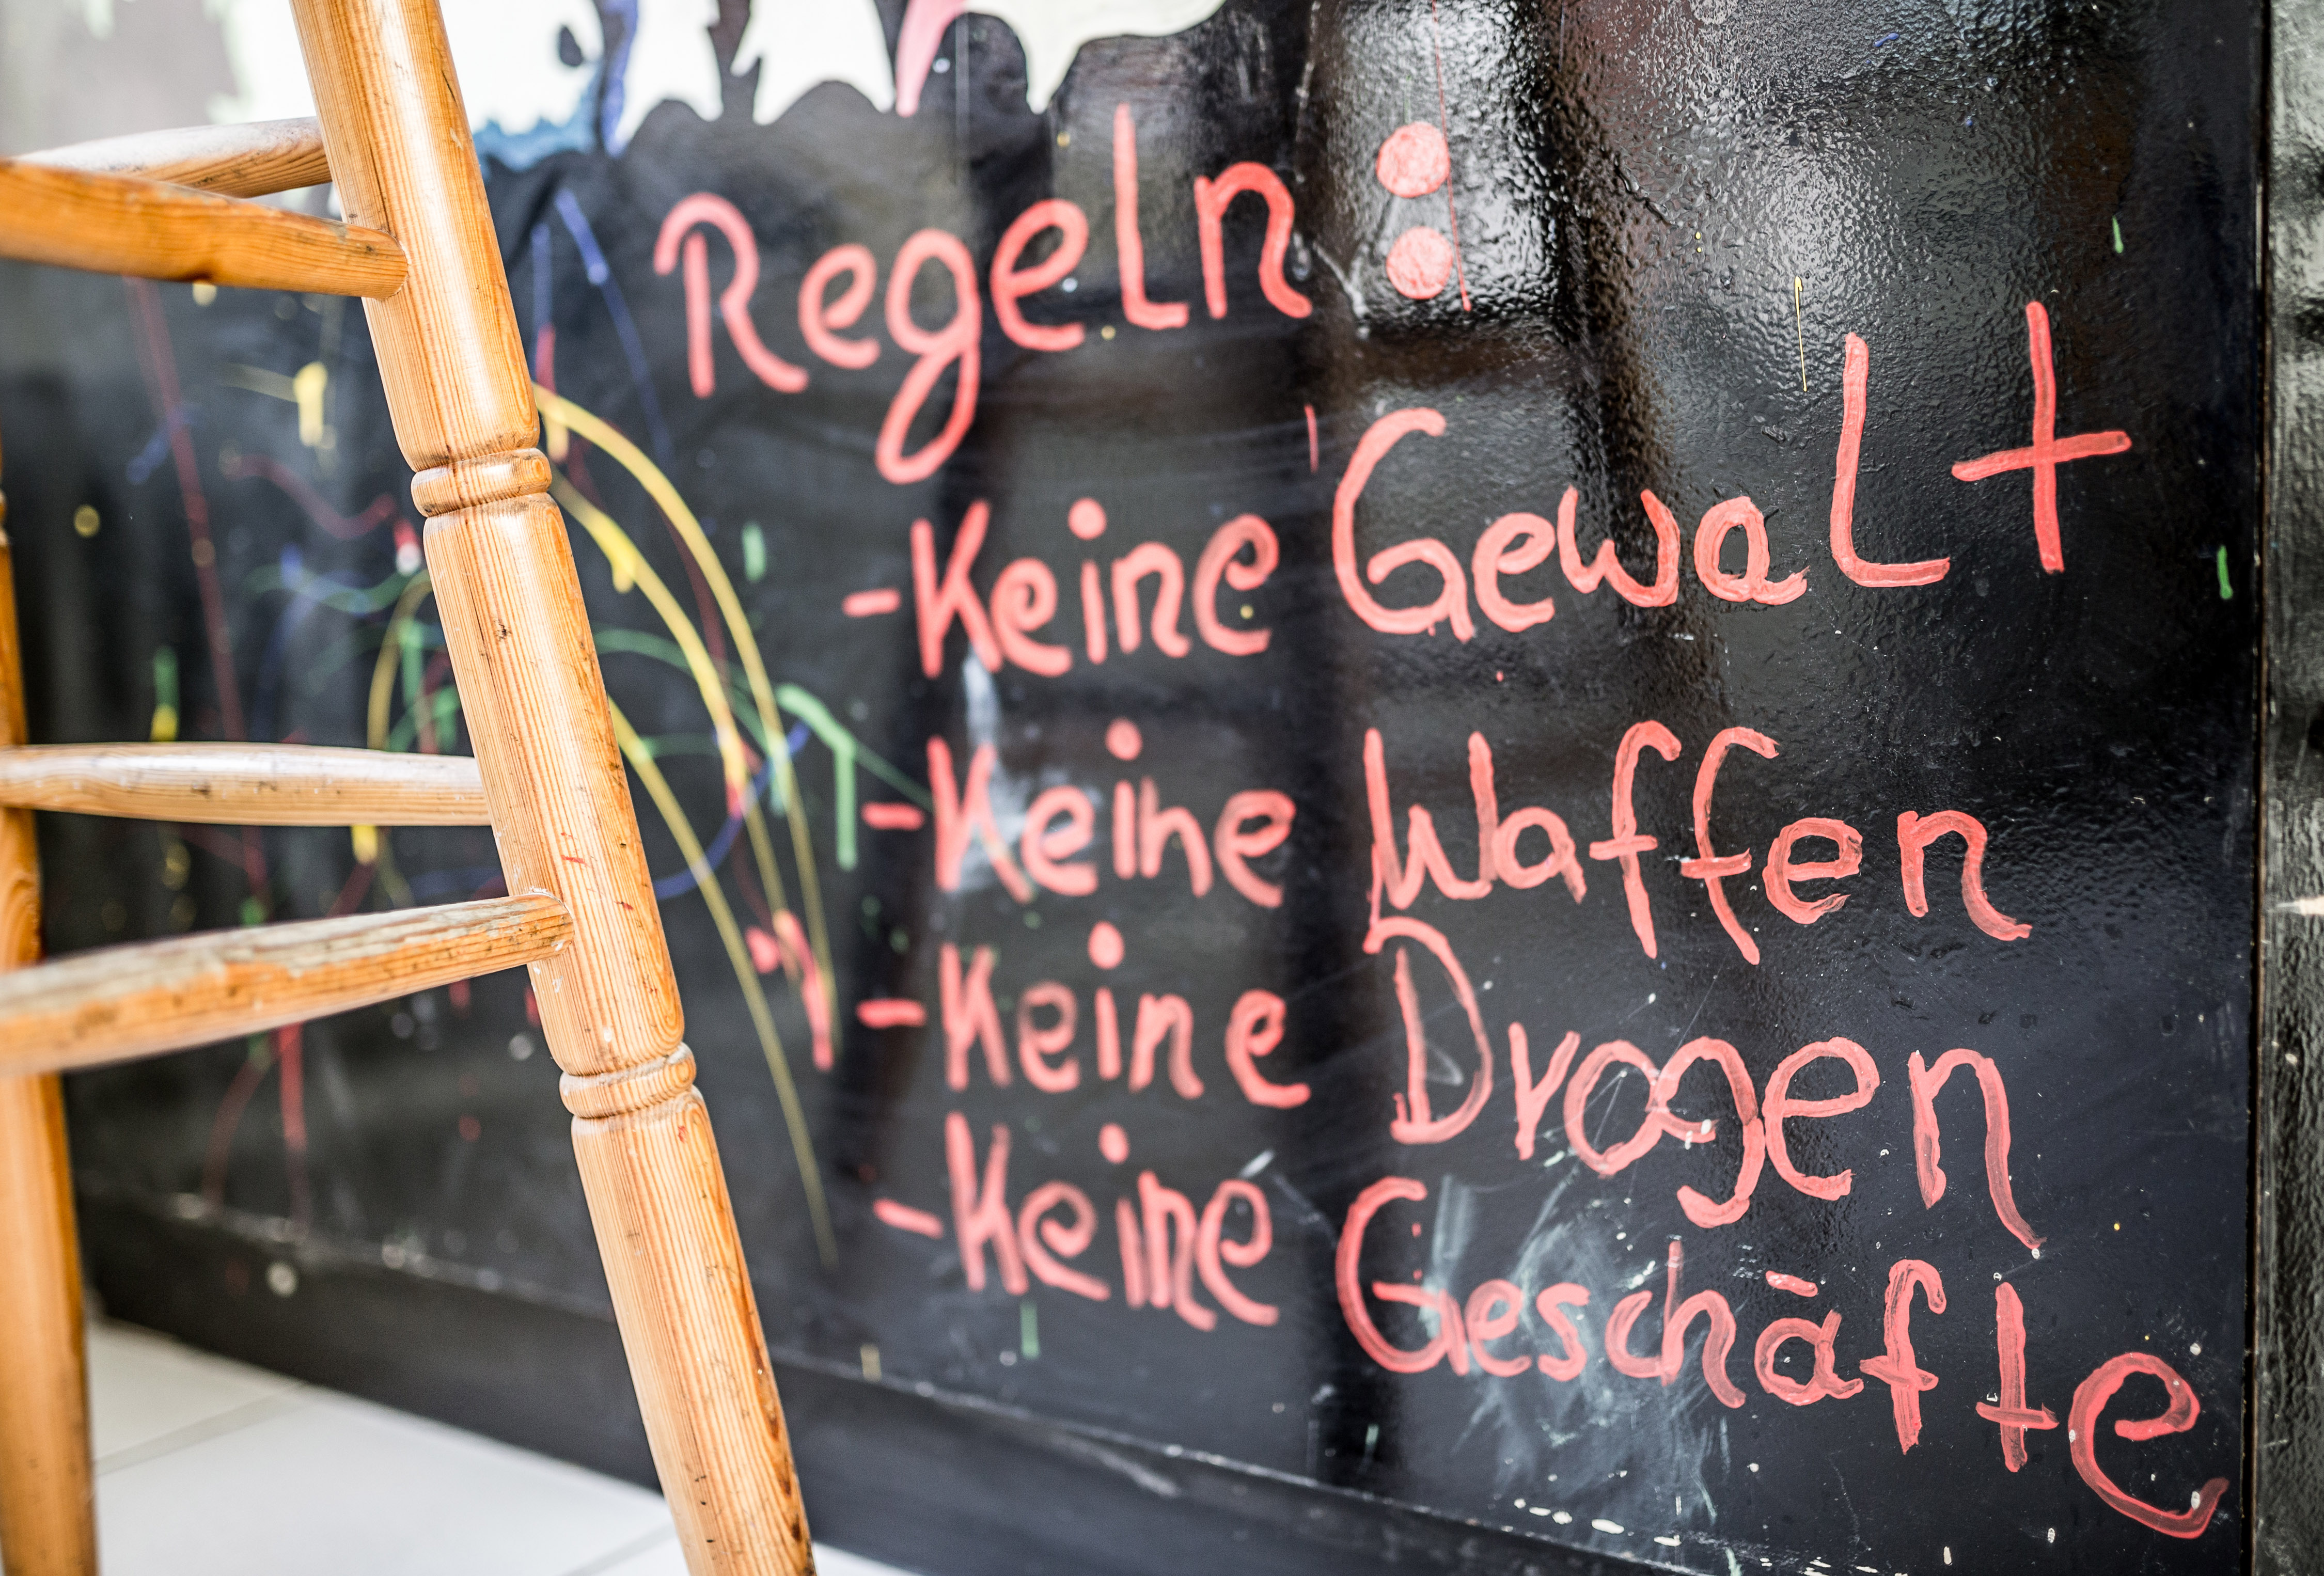 Regeln:
-Keine Gewalt
-Keine Waffen
-Keine Drogen
-Keine Geschäfte